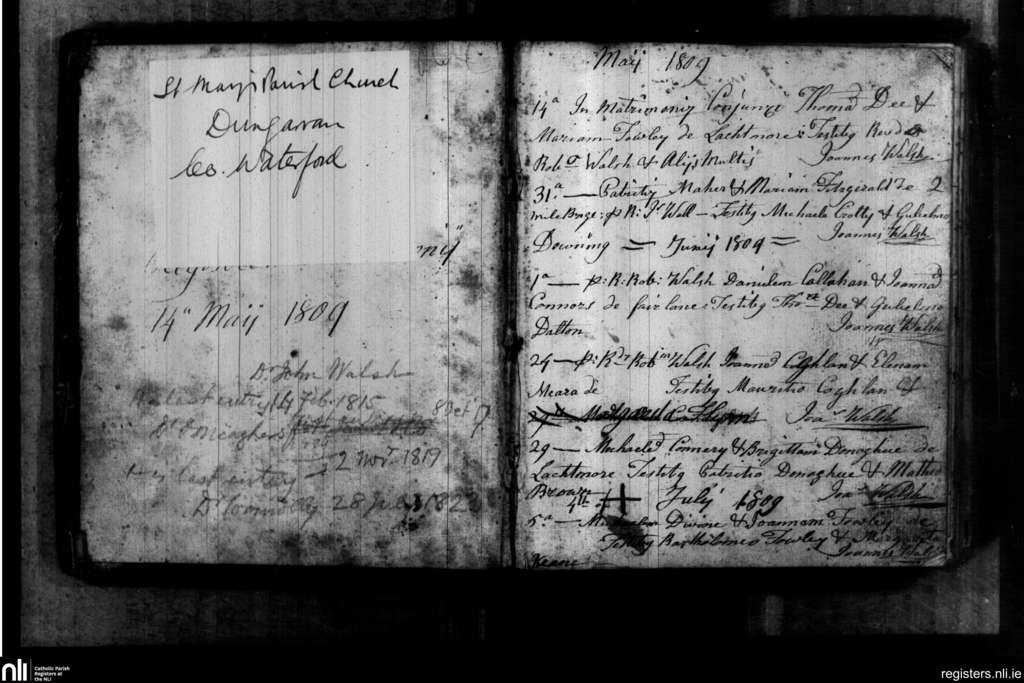 St Mary's Parish Church
Dungarvan
Co. Waterford
14ª Maij 1809
Dr John Walsh
last entry 14 Feb. 1815
Dr Meagher 8 Oct 17
2 Novr 1819
last entry
Dr 28
Maij 1809
14ª In Matrimoniz Conjunxi Thomad Dee &
Mariam Fowley de Lachtmore: Testibq Revd
Robt Walsh & Alijs Multis Joannes Walsh.
31ª — Patritiz Maher & Mariam Fitzgerald 2
mile Brige: p R: Jn Wall — Testibq Michaele Crotty & Gulielmo
Downing = Junij 1809 = Joannes Walsh
1ª — p: R: Rob: Walsh Danielem Callahan & Joannad
Connors de fair lane: Testibq Thos Dee & Gulielmo
Dalton Joannes Walsh
24 — p: Rd Robtm Walsh Joannd Coghlan & Elenam
Meara de Testibq Mauritio Coghlan &
Margareta Flynn Joas Walsh
29 — Michaeld Connery & Brigittam Donoghue de
Lachtmore Testibq Patritio Donoghue & Matheo
Joas Walsh
4th July 1809
5ª — Divine & Joannam Fowley de
Testibq Bartholomeo Fowley & Margareta
Keane Joannes Walsh
nli Catholic Parish
Registers at
the NLI
registers.nli.ie